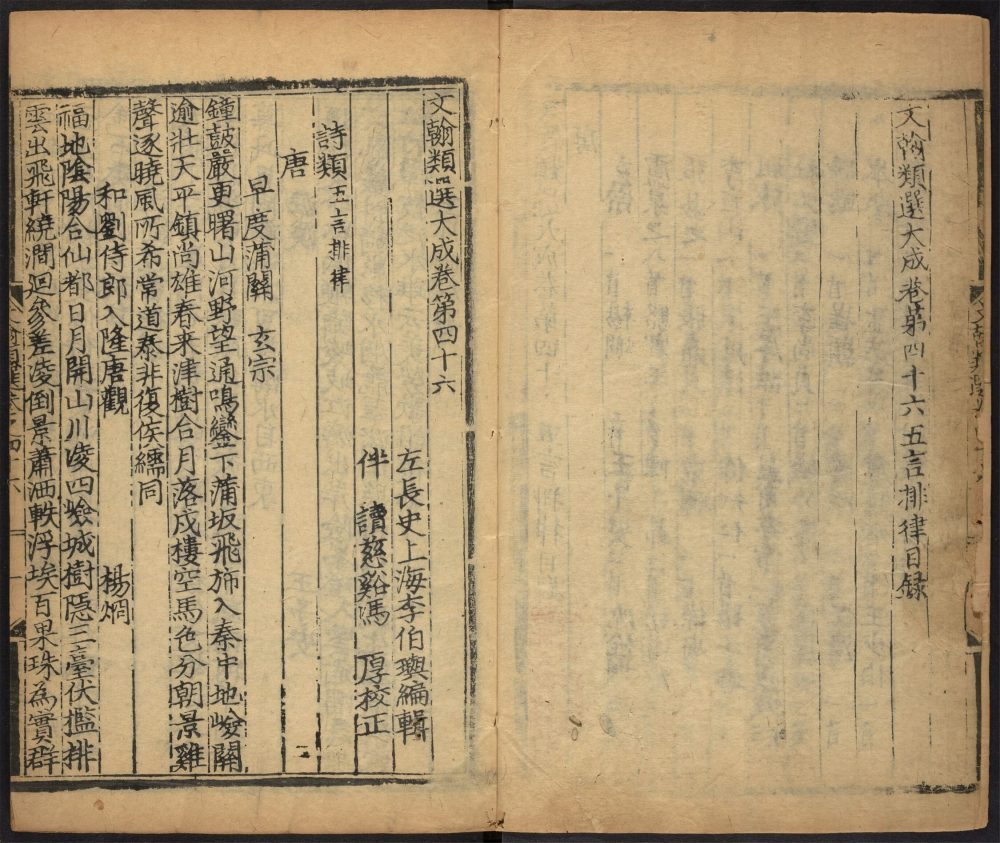 文翰類選大成卷第四十六五言排律目録
文翰類選大成卷第四十六
左長史上海李伯璵編輯
伴讀慈谿馮厚校正
詩類五言排律
唐
早度蒲關 玄宗
鐘鼓嚴更曙山河野望通鳴鑾下蒲坂飛斾入秦中地嶮關
逾壯天平鎮尚雄春来津樹合月落戍樓空馬色分朝景雞
聲逐曉風所希常道泰非復侯繻同
和劉侍郎入隆唐觀 楊炯
福地隂陽合仙都日月開山川凌四嶮城樹隠三臺伏檻排
雲出飛軒繞澗迴參差凌倒景蕭洒軼浮埃百果珠為實群